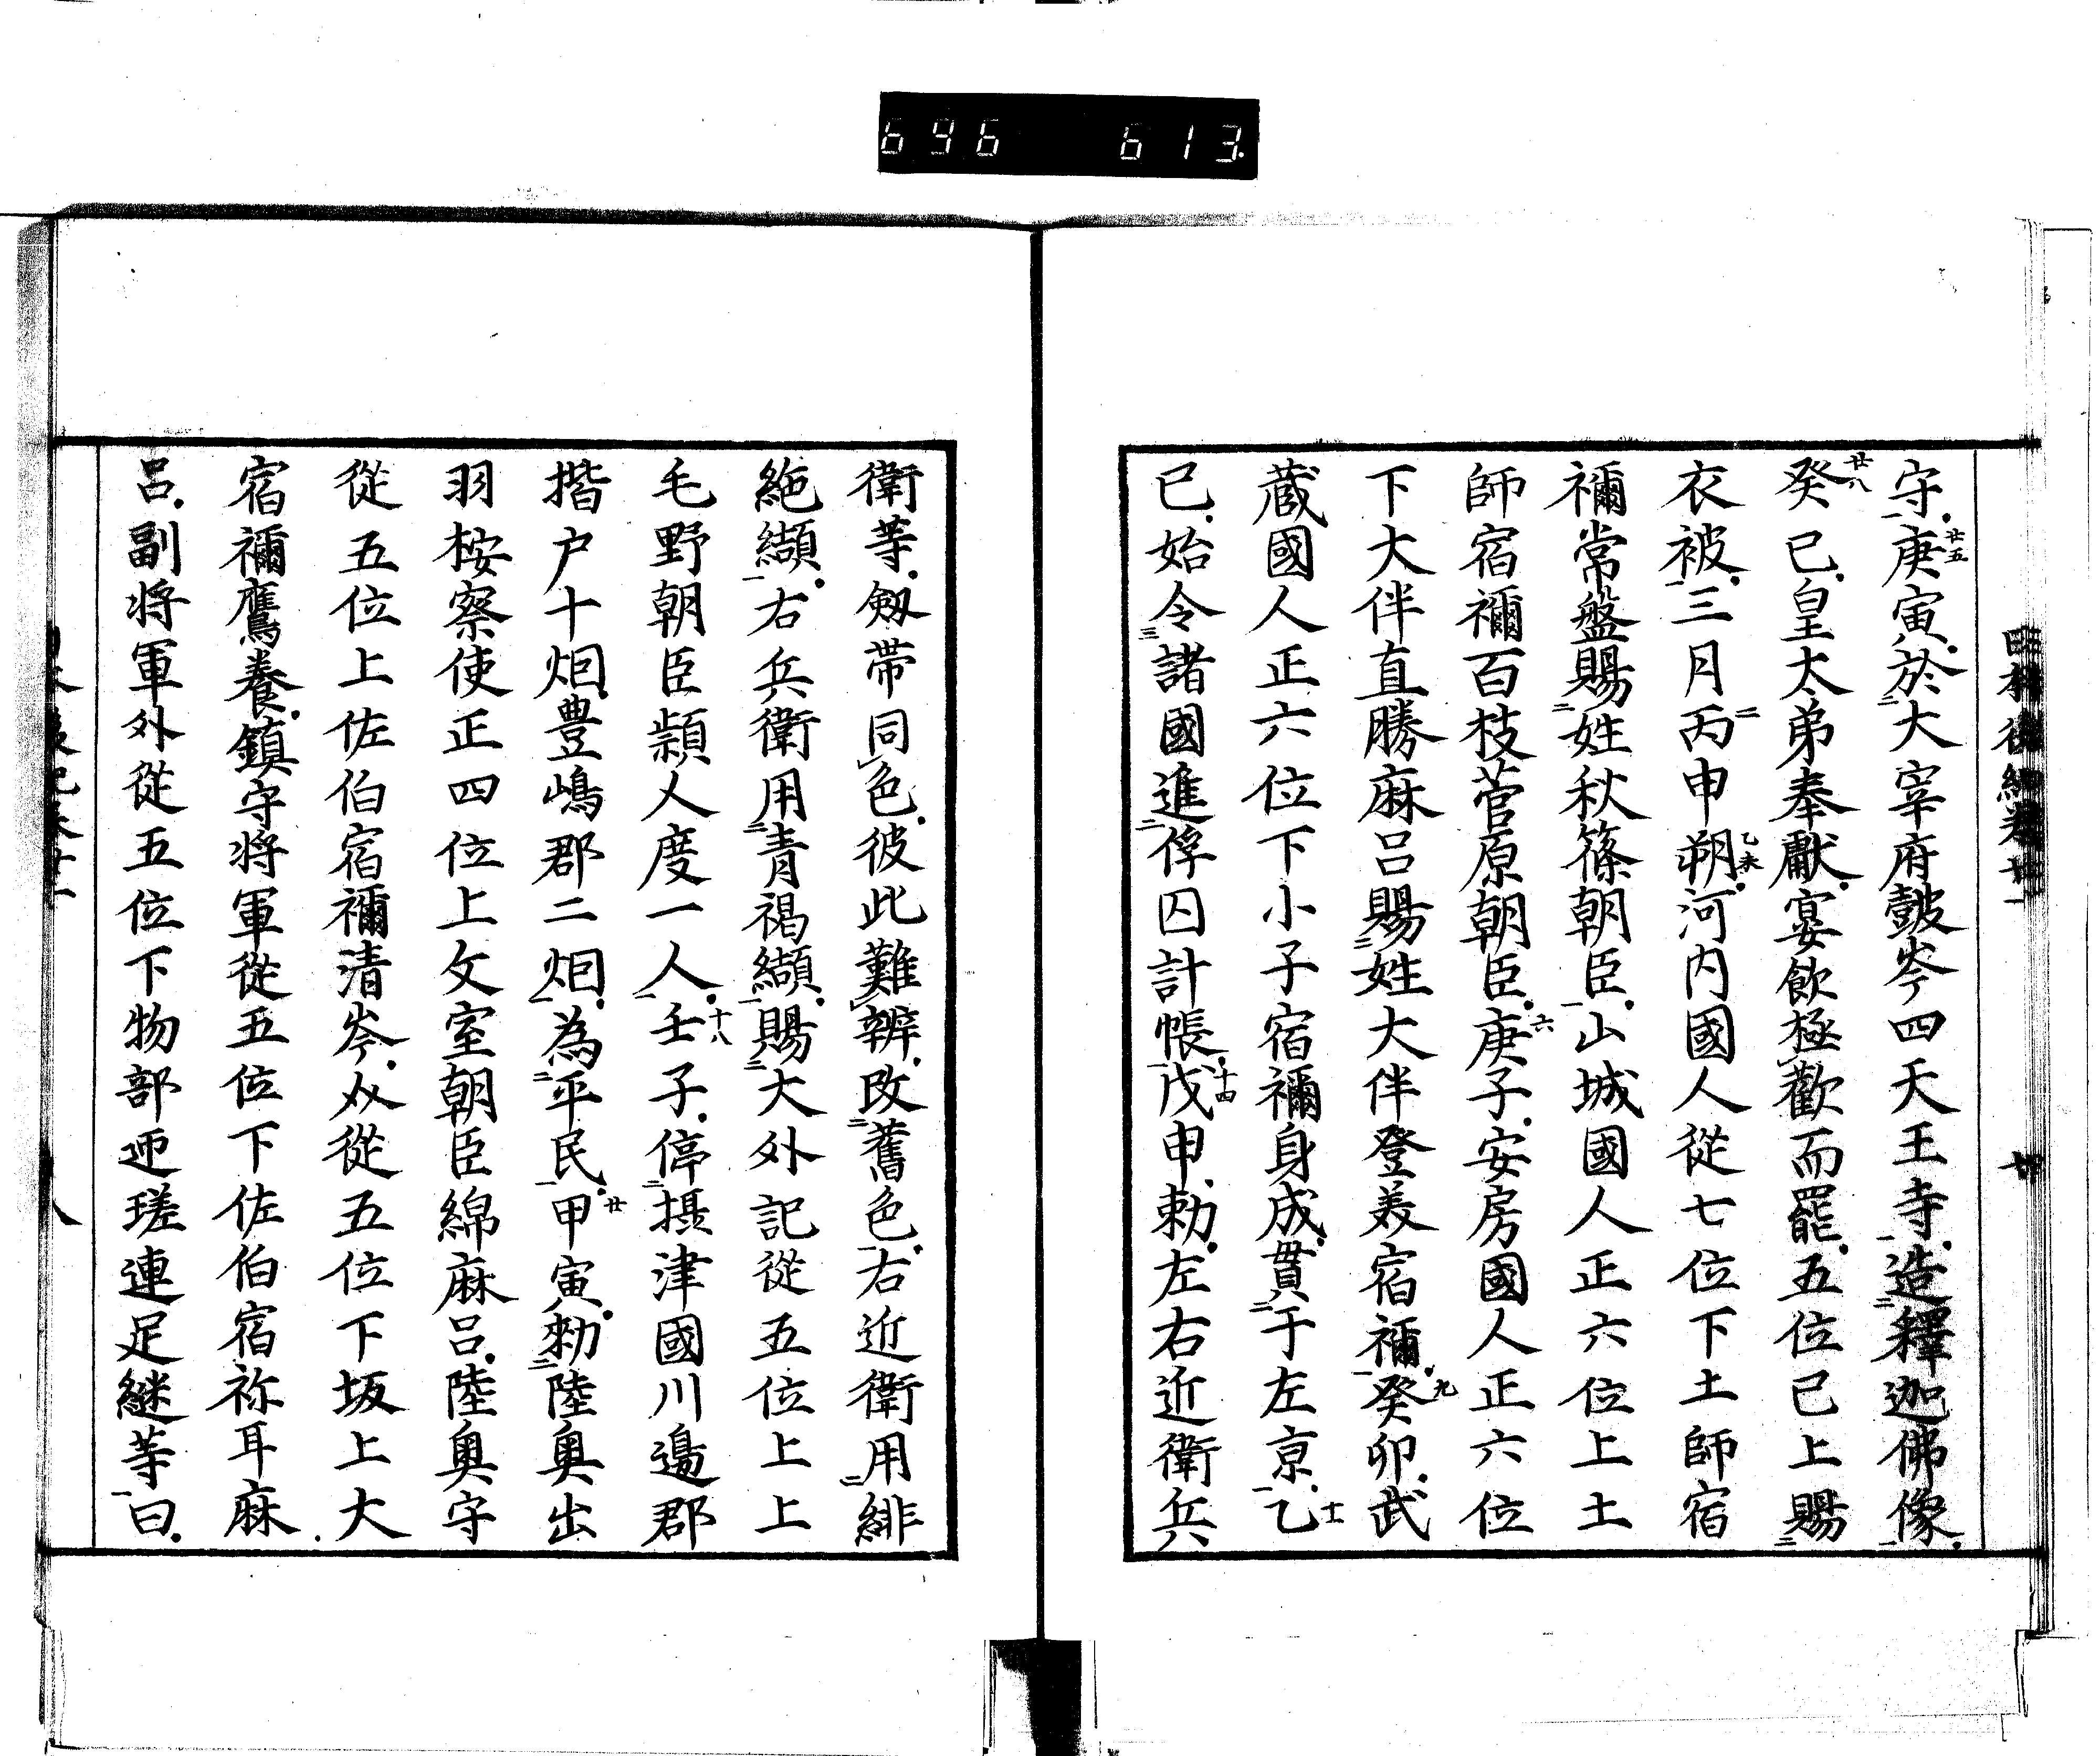 696 613
守庚寅於大宰府鼓岑四天王寺造釋迦佛像
廿五
癸巳皇太弟奉獻宴飲極歡而罷五位已上賜
廿八
衣被三月丙申朔河内國人從七位下土師宿
二
乙未
禰常盤賜姓秋篠朝臣山城國人正六位上土
師宿禰百枝菅原朝臣庚子安房國人正六位
六
下大伴直勝麻呂賜姓大伴登美宿禰癸卯武
九
蔵國人正六位下小子宿禰身成貫于左京乙
十一
巳始令諸國進俘囚計帳戊申勅左右近衛兵
十四
衛等剱帯同色彼此難辨改舊色右近衛用緋
絁纈右兵衛用青褐纈賜大外記從五位上上
毛野朝臣頴人度一人壬子停摂津國川邊郡
十八
揩戸十烟豊嶋郡二烟為平民甲寅勅陸奥出
廿
羽桉察使正四位上文室朝臣綿麻呂陸奥守
從五位上佐伯宿禰清岑从從五位下坂上大
宿禰鷹養鎮守将軍從五位下佐伯宿祢耳麻
呂副将軍外從五位下物部迊瑳連足継等曰